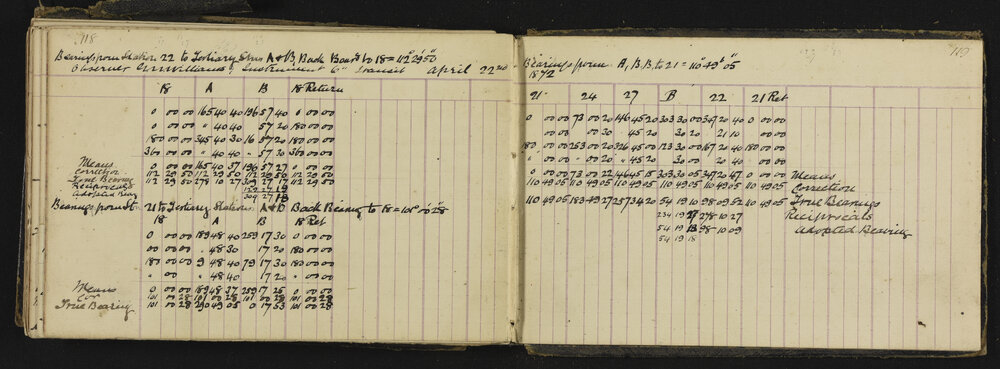 118
Bearings from Station 22 to Tertiary Stns A & B, Back Bear'g to 18 = 112° 29' 50"
Observer Instrument 6" Transit April 22nd
18 A B 18 Return
0 00 00 165 40 40 196 57 40 0 00 00
0 00 00 " 40 40 57 20 180 00 00
180 00 00 345 40 30 16 57 20 180 00 00
360 00 00 " 40 40 " 57 30 360 00 00
Means 0 00 00 165 40 37 196 57 27 0 00 00
Correction 112 29 50 112 29 50 112 29 50 112 29 50
True Bearing 112 29 50 278 10 27 309 27 17 112 29 50
Reciprocals 129 27 19
Adopted Bearg 309 27 18
Bearings from St. 21 to Tertiary Stations A & B Back Bearing to 18 = 101° 00' 28
18 A B 18 Ret
0 00 00 189 48 40 259 17 30 0 00 00
00 00 " 48 30 17 20 180 00 00
180 00 00 9 48 40 79 17 30 180 00 00
" 00 00 " 48 40 17 20 " 00 00
Means 0 00 00 189 48 37 259 17 25 0 00 00
Cor 101 00 28 101 00 28 101 00 28 101 00 28
True Bearing 101 00 28 290 49 05 0 17 53 101 00 28
119
Bearings from A, B, B, to 21 = 110° 49' 05
1872
21 24 27 B 22 21 Ret
0 00 00 73 00 20 146 45 20 303 30 00 347 20 40 0 00 00
00 00 00 30 45 20 30 20 21 10 00 00
180 00 00 253 00 20 326 45 00 123 30 00 167 20 40 180 00 00
" 00 00 " 00 20 " 45 20 30 00 20 40 00 00
0 00 00 73 00 22 146 45 15 303 30 05 347 20 47 0 00 00 Means
110 49 05 110 49 05 110 49 05 110 49 05 110 49 05 110 49 05 Correction
110 49 05 183 49 27 257 34 20 54 19 10 98 09 52 110 49 05 True Bearings
234 19 27 278 10 27 Reciprocals
54 19 18 98 10 09 Adopted Bearing
54 19 18